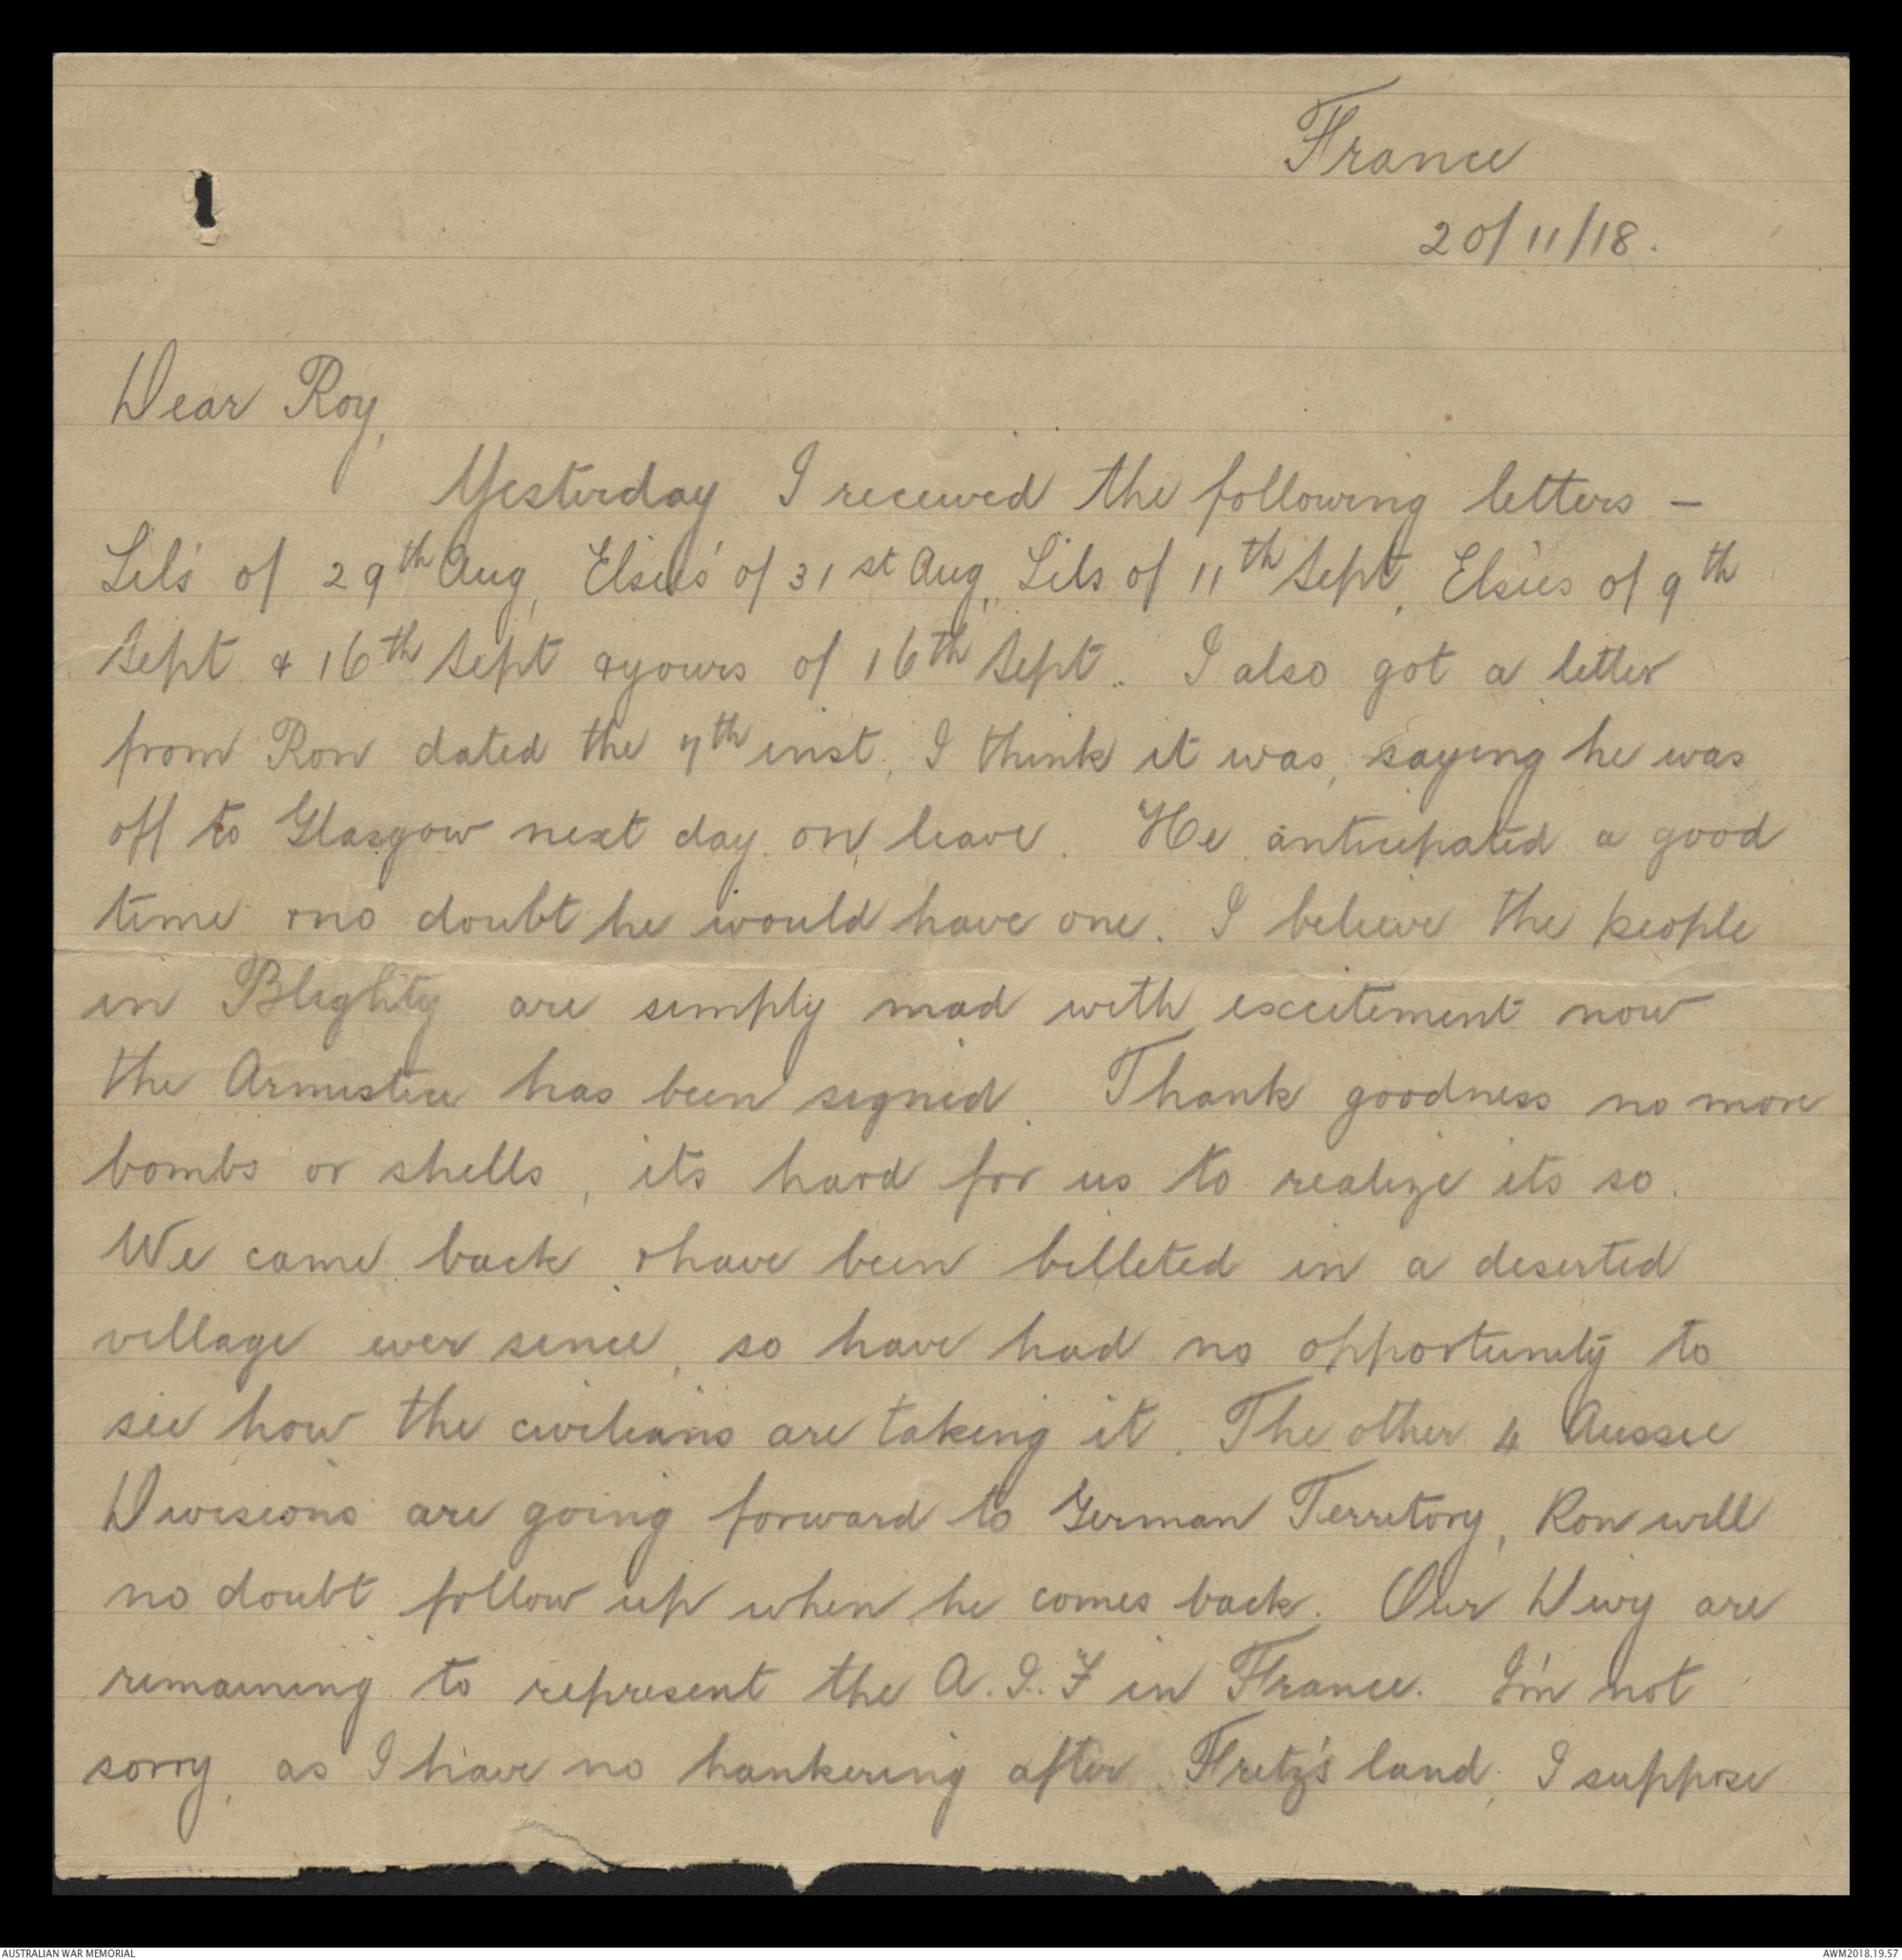 France
20/11/18.
Dear Roy,
Yesterday I received the following letters -
Lil's of 29th Aug, Elsie's of 31st Aug, Lils of 11th Sept, Elsie's of 9th
Sept & 16th Sept & yours of 16th Sept. I also got a letter
from Ron dated the 7th inst, I think it was, saying he was
off to Glasgow next day on leave. He anticipated a good
time & no doubt he would have one. I believe the people
in Blighty are simply mad with excitement now
the Armistice has been signed. Thank goodness no more
bombs or shells, its hard for us to realize its so.
We came back & have been billeted in a deserted
village ever since, so have had no opportunity to
see how the civilians are taking it. The other 4 Aussie
Divisions are going forward to German Territory, Ron will
no doubt follow up when he comes back. Our Divvy are
remaining to represent the A.I.F in France. I'm not
sorry, as I have no hankering after Fritz's land, I suppose
AUSTRALIAN WAR MEMORIAL
AWM2018.19.57